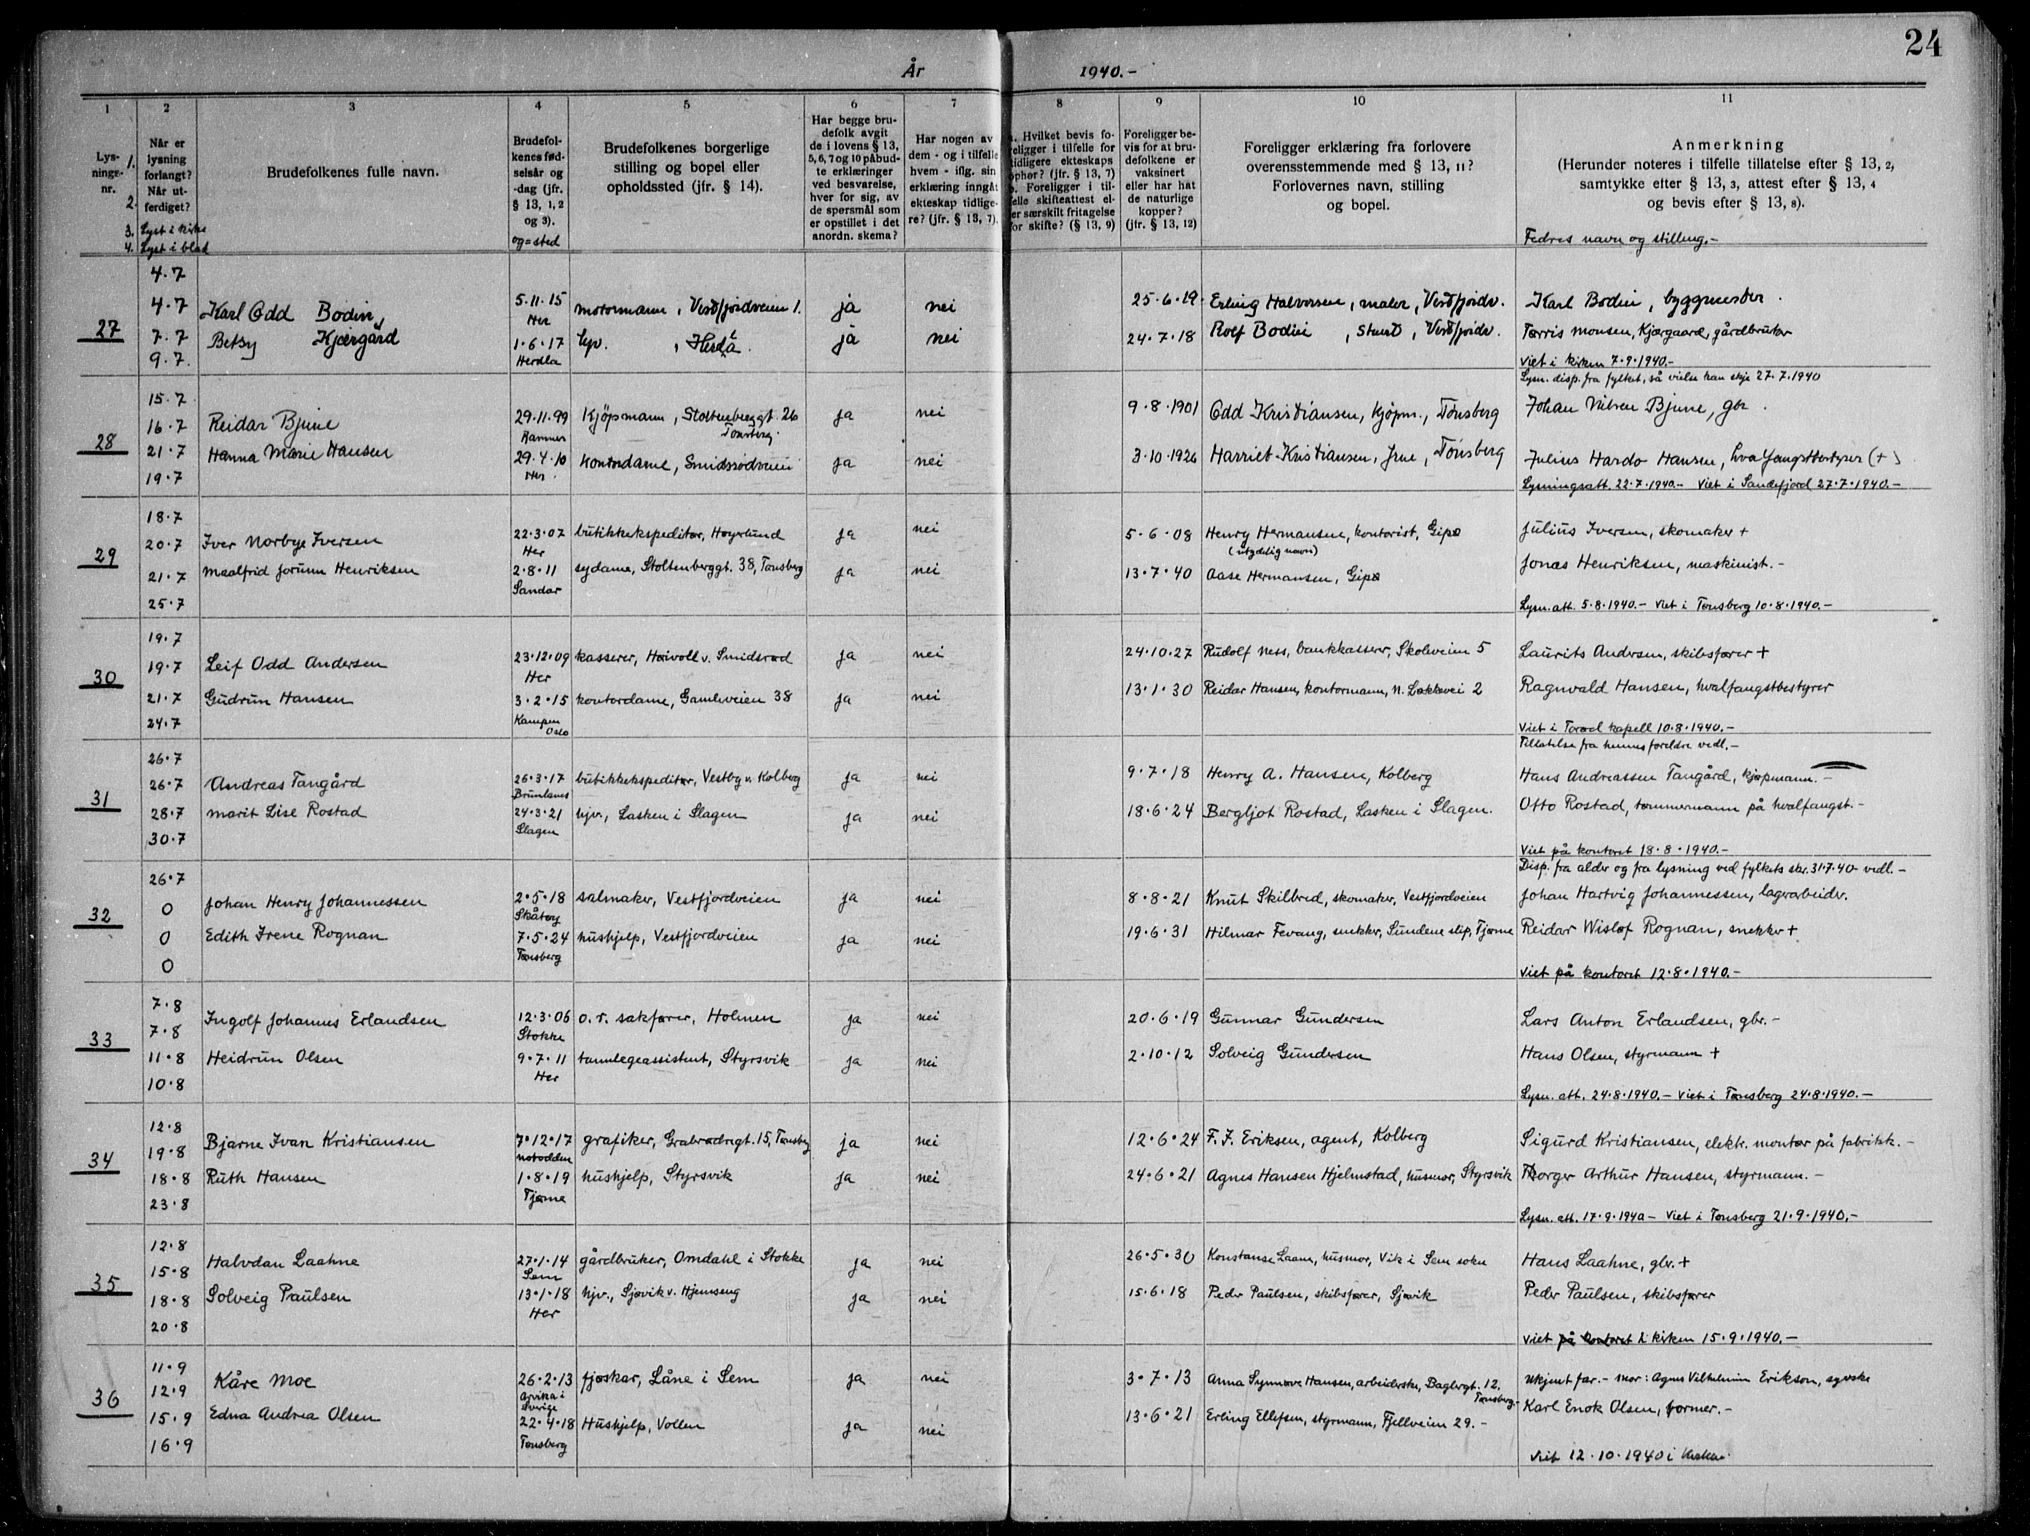 24
År 1940.-
1 2 3 4 5 6 7 8 9 10 11
Lys-
nings-
nr.
1.
2.
3. Lyst i kirke
4. Lyst i blad
Når er
lysning
forlangt?
Når ut-
ferdiget?
Brudefolkenes fulle navn.
Brudefol-
kenes fød-
selsår og
-dag (jfr.
§ 13, 1, 2
og 3).
og = sted
Brudefolkenes borgerlige
stilling og bopel eller
opholdssted (jfr. § 14).
Har begge bru-
defolk avgit
de i lovens § 13,
5, 6, 7 og 10 påbud-
te erklæringer
ved besvarelse,
hver for sig, av
de spørsmål som
er opstillet i det
anordn. skema?
Har nogen av
dem - og i tilfelle
hvem - iflg. sin
erklæring inngått
ekteskap tidlige-
re? (jfr. § 13, 7).
a. Hvilket bevis fo-
religger i tilfelle for
tidligere ekteskaps
ophør? (jfr. § 13, 7)
b. Foreligger i til-
felle skifteattest el-
er særskilt fritagelse
for skifte? (§ 13, 9)
Foreligger be-
vis for at bru-
defolkene er
vaksinert
eller har hat
de naturlige
kopper?
(jfr. § 13, 12)
Foreligger erklæring fra forlovere
overensstemmende med § 13, 11?
Forlovernes navn, stilling
og bopel.
Anmerkning
(Herunder noteres i tilfelle tillatelse efter § 13, 2,
samtykke efter § 13, 3, attest efter § 13, 4
og bevis efter § 13, 8).
Fedres navn og stilling.-
27
4.7
4.7
7.7
9.7.
Karl Odd Bodin,
Betsy Kjærgård
5.11.15
Her
1.6.17
Herdla
motormann, Vestfjordveien 1.
hjv., Herdla.
ja nei
ja nei
25.6.19
24.7.18
Erling Halvorsen, maler, Vestfjordv.
Rolf Bodin, stuert, Vestfjordv.
Karl Bodin, byggmester.
Tørris Monsen, Kjærgaard, gårdbruker
Viet i kirken 7.9.1940.-
28
15.7
16.7
21.7
19.7
Reidar Bjune
Hanna Marie Hansen
29.11.99
Ramnes
29.4.10
Her
Kjøpmann, Stoltenberggt. 26
Tønsberg
Kontordame, Smidsrødveien
ja nei
ja nei
9.8.1901
3.10.1926
Odd Kristiansen, kjøpm., Tønsberg
Harriet Kristiansen, frue, Tønsberg
Lysn. disp. fra fylket, så vielse kan skje 27.7.1940
Johan Nilsen Bjune, gbr.
Julius Hardo Hansen, hvalfangstbestyrer (+)
Lysningsatt. 22.7.1940.- Viet i Sandefjord 27.7.1940.-
29
18.7
20.7
21.7
25.7
Iver Norbye Iversen
Maalfrid Jorunn Henriksen
22.3.07
Her
2.8.11
Sandar
butikkekspeditør, Høyslund
sydame, Stoltenberggt. 38, Tønsberg
ja nei
ja nei
5.6.08
13.7.40
Henry Hermansen, kontorist, Gipø
(utydelig navn)
Aase Hermansen, Gipø
Julius Iversen, skomaker +
Jonas Henriksen, maskinist.-
Lysn. att. 5.8.1940.- Viet i Tønsberg 10.8.1940.-
30
19.7
19.7
21.7
24.7
Leif Odd Andersen
Gudrun Hansen
23.12.09
Her
3.2.15
Kampen
Oslo
kasserer, Heivoll v. Smidsrød
kontordame, Gamleveien 38
ja nei
ja nei
24.10.27
13.1.30
Rudolf Ness, bankkasserer, Skoleveien 5
Reidar Hansen, kontormann, N. Løkkevei 2
Laurits Andersen, skibsfører +
Ragnvald Hansen, hvalfangstbestyrer
Viet i Torød kapell 10.8.1940.-
31
26.7
26.7
28.7
30.7
Andreas Tangård
Marit Lise Rostad
26.3.17
Brunlanes
24.3.21
Slagen
butikkekspeditør, Vestby v. Kolberg
hjv., Lasken i Slagen
ja nei
ja nei
9.7.18
18.6.24
Henry A. Hansen, Kolberg
Bergljot Rostad, Lasken i Slagen.
Tillatelse fra hennes foreldre vedl.-
Hans Andreassen Tangård, kjøpmann.-
Otto Rostad, tømmermann på hvalfangst.-
Viet på kontoret 18.8.1940.-
32
26.7
0
0
0
Johan Henry Johannessen
Edith Irene Rognan
2.5.18
Skåtøy
7.5.24
Tønsberg
salmaker, Vestfjordveien
hushjelp, Vestfjordveien
ja nei
ja nei
8.8.21
19.6.31
Knut Skilbred, skomaker, Vestfjordveien
Hilmar Fevang, snekker, Sundene slip, Tjøme
Disp. fra alder og fra lysning ved fylkets skr. 31.7.40 vedl.-
Johan Hartvig Johannessen, lagerarbeider.
Reidar Wisløf Rognan, snekker +
Viet på kontoret 12.8.1940.-
33
7.8
7.8
11.8
10.8
Ingolf Johannes Erlandsen
Heidrun Olsen
12.3.06
Stokke
9.7.11
Her
o.r. sakfører, Holmen
tannlegeassistent, Styrsvik
ja nei
ja nei
20.6.19
2.10.12
Gunnar Gundersen
Solveig Gundersen
Lars Anton Erlandsen, gbr.-
Hans Olsen, styrmann +
Lysn. att. 24.8.1940.- Viet i Tønsberg 24.8.1940.-
34
12.8
19.8
18.8
23.8
Bjarne Ivan Kristiansen
Ruth Hansen
7.12.17
Notodden
1.8.19
Tjøme
grafiker, Grabrødregt. 15, Tønsberg
hushjelp, Styrsvik
ja nei
ja nei
12.6.24
24.6.21
F. F. Eriksen, agent, Kolberg
Agnes Hansen Hjelmstad, husmor, Styrsvik
Sigurd Kristiansen, elektr. montør på fabrikk.-
Thorger Arthur Hansen, styrmann.-
Lysn. att. 17.9.1940- Viet i Tønsberg 21.9.1940.-
35
12.8
15.8
18.8
20.8
Halvdan Laahne
Solveig Paulsen
27.1.14
Sem
13.1.18
Her
gårdbruker, Omdahl i Stokke
hjv., Sjøvik v. Hjemseng
ja nei
ja nei
26.5.30
15.6.18
Konstanse Laane, husmor, Vik i Sem sokn
Peder Paulsen, skibsfører, Sjøvik
Hans Laahne, gbr. +
Peder Paulsen, skibsfører
Viet på kontoret i kirken 15.9.1940.-
36
11.9
12.9
15.9
16.9
Kåre Moe
Edna Andrea Olsen
26.2.13
Arvika i
Sverige
22.4.18
Tønsberg
fjøskar, Låne i Sem
Hushjelp, Vollen
ja nei
ja nei
3.7.13
13.6.21
Anna Synnøve Hansen, arbeiderske, Baglergt. 12.
Tønsberg.
Erling Ellefsen, styrmann, Fjellveien 29.-
Ukjent far.- mor: Agnes Vilhelmin Erikson, syerske
Karl Enok Olsen, former.-
Viet 12.10.1940 i kirken.